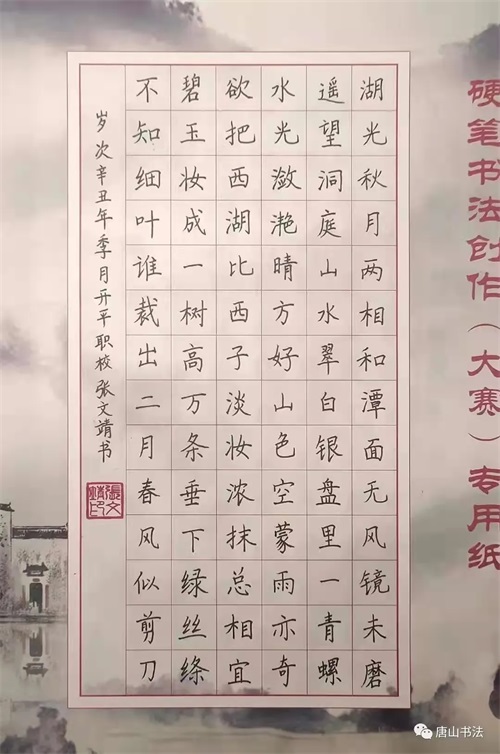 硬笔书法创作（大赛）专用纸
湖光秋月两相和潭面无风镜未磨
遥望洞庭山水翠白银盘里一青螺
水光潋滟晴方好山色空蒙雨亦奇
欲把西湖比西子淡妆浓抹总相宜
碧玉妆成一树高万条垂下绿丝绦
不知细叶谁裁出二月春风似剪刀
岁次辛丑年季月开平职校张文靖书
張文靖印
唐山书法